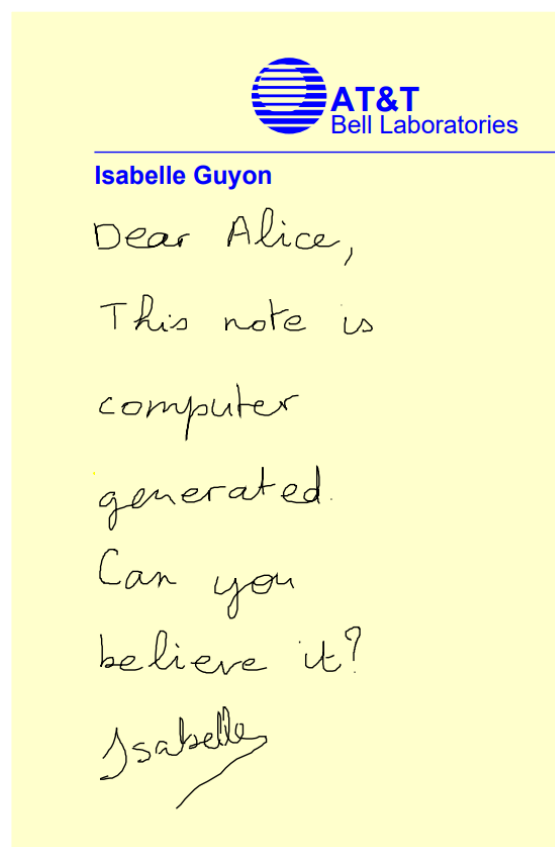 AT&T
Bell Laboratories
Isabelle Guyon
Dear Alice,
This note is
computer
generated.
Can you
believe it?
Isabelle